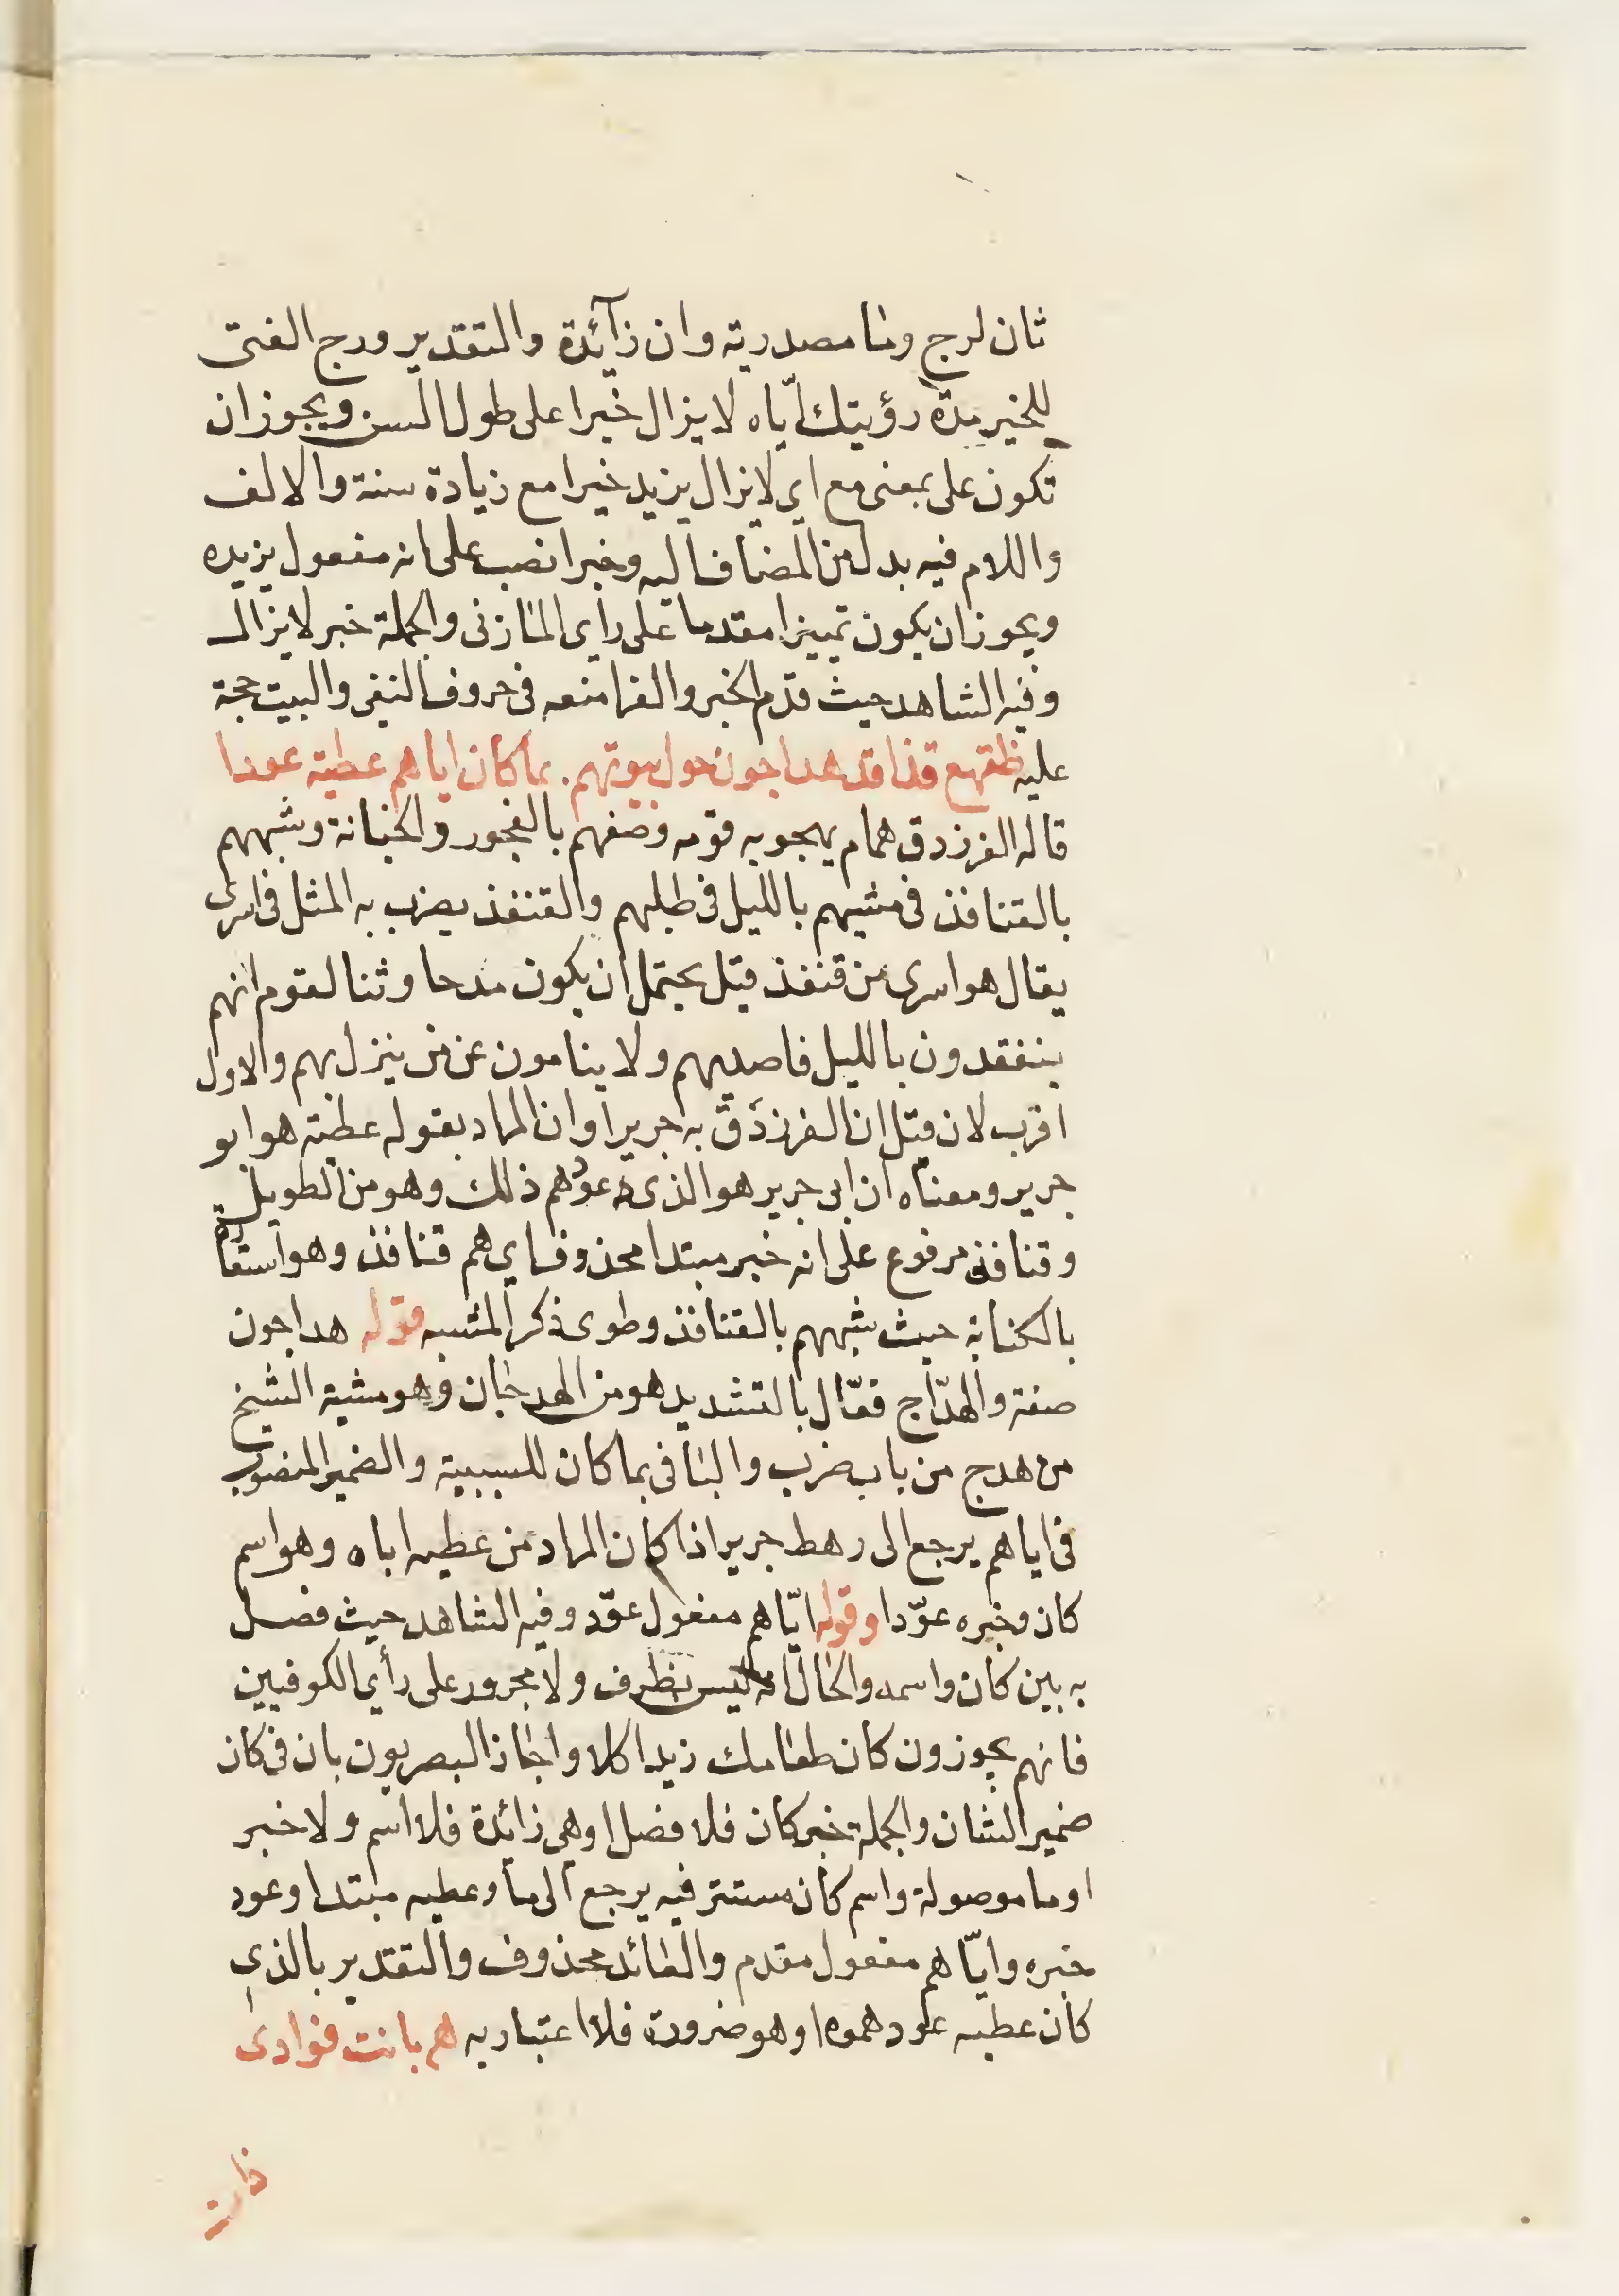 ثان لرج وما مصدرية وان زآئدة والتقدير ورج الفتى
للخير مدة رؤيتك اياه لا يزال خيرا على طول السن ويجوز ان
تكون على بمعنى مع اي لا يزال يزيد خيرا مع زيادة سنة والالف
واللام فيه بدل من المضاف اليه وخيرا نصب على انه مفعول يزيده
ويجوز ان يكون تمييزا مقدما على راى المازنى والجملة خبر لا يزال
وفيه الشاهد حيث قدم الخبر والفرا منعه فى حروف النفى والبيت حجة
عليه ظقهع قنافذ هداجون حول بيوتهم. بما كان اياهم عطية عودا
قاله الفرزدق همام يهجو به قومه وصفهم بالفجور والخيانة وشبههم
بالقنافذ فى مشيهم بالليل فى طلبهم والقنفذ يضرب به المثل فى اسرى
يقال هو اسرى من قنفذ قيل يحتمل ان يكون مدحا وثنا لقوم انهم
يتفقدون بالليل قاصديهم ولا ينامون عن من ينزل بهم والاول
اقرب لان قيل ان الفرزدق به جريرا وان المراد بقوله عطية هو ابو
جرير ومعناه ان ابى جرير هو الذى عودهم ذلك وهو من الطويل
وقنافذ مرفوع على انه خبر مبتدا محذوف اي هم قنافذ وهو استعارة
بالكناية حيث شبههم بالقنافذ وطوى ذكر المشبه قوله هداجون
صفة والهدّاج فعّال بالتشديد هو من الهدجان وهو مشية الشيخ
من هدج من باب ضرب والبا فى بما كان للسببية والضمير المنصوب
فى اياهم يرجع الى رهط جرير اذا كان المراد من عطيه اباه وهو اسم
كان وخبره عوّدا وقوله ايّاهم مفعول عوّد وفيه الشاهد حيث فصل
به بين كان واسمه والحال انه ليس بظرف ولا مجرور على رأي الكوفيين
فانهم يجوزون كان طعامك زيد اكلا واجاز البصريون بان فى كان
ضمير الشان والجملة خبر كان فلا فصل اوهى زائدة فلا اسم ولا خبر
او ما موصولة واسم كان مستتر فيه يرجع الى ما وعطيه مبتدا وعود
خبره وايّاهم مفعول مقدم والعائد محذوف والتقدير بالذي
كان عطيه عودهموه اوهو ضرورة فلا اعتبار به هم بانت فوادى
ذات